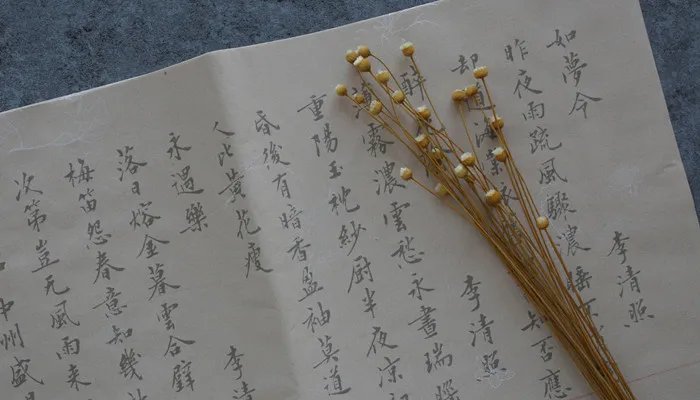 如夢令 李清照
昨夜雨疏風驟濃睡不
却道海棠 知否應
醉 李清照
薄霧濃雲愁永晝瑞
重陽玉枕紗厨半夜凉
昏後有暗香盈袖莫道
人比黃花瘦
永遇樂 李清
落日熔金暮雲合璧
梅笛怨春意知幾
次第豈无風雨来
中州盛